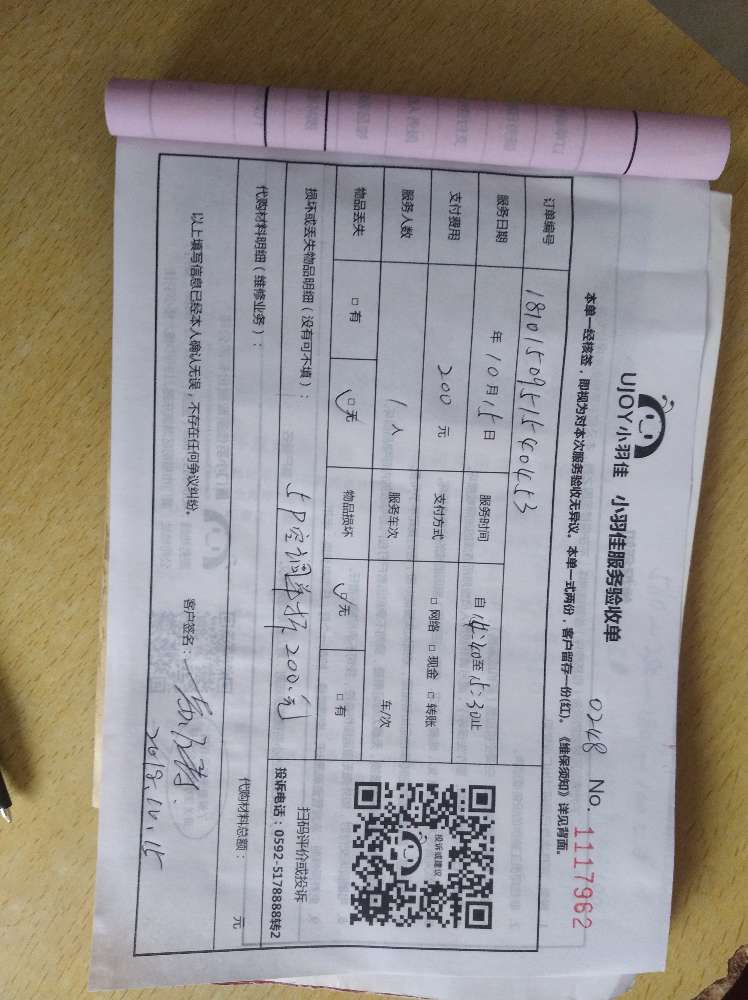 UJOY小羽佳 小羽佳服务验收单
0248 No. 1117962
本单一经核签，即视为对本次服务验收无异议。本单一式两份，客户留存一份(红)。《维保须知》详见背面。
订单编号 181015095151540453
服务日期 年10月15日 服务时间 自14:40至15:30止
支付费用 200 元 支付方式 □ 网络 □ 现金 □ 转账
服务人数 1 人 服务车次 车/次
物品丢失 □ 有 □ 无 物品损坏 □ 无 □ 有
损坏或丢失物品明细（没有可不填）： 5P空调单拆200元
投诉或建议
扫码评价或投诉
投诉电话：0592-5178888转2
代购材料明细（维修业务）： 代购材料总额： 元
以上填写信息已经本人确认无误，不存在任何争议纠纷。
客户签名：
2018.10.15